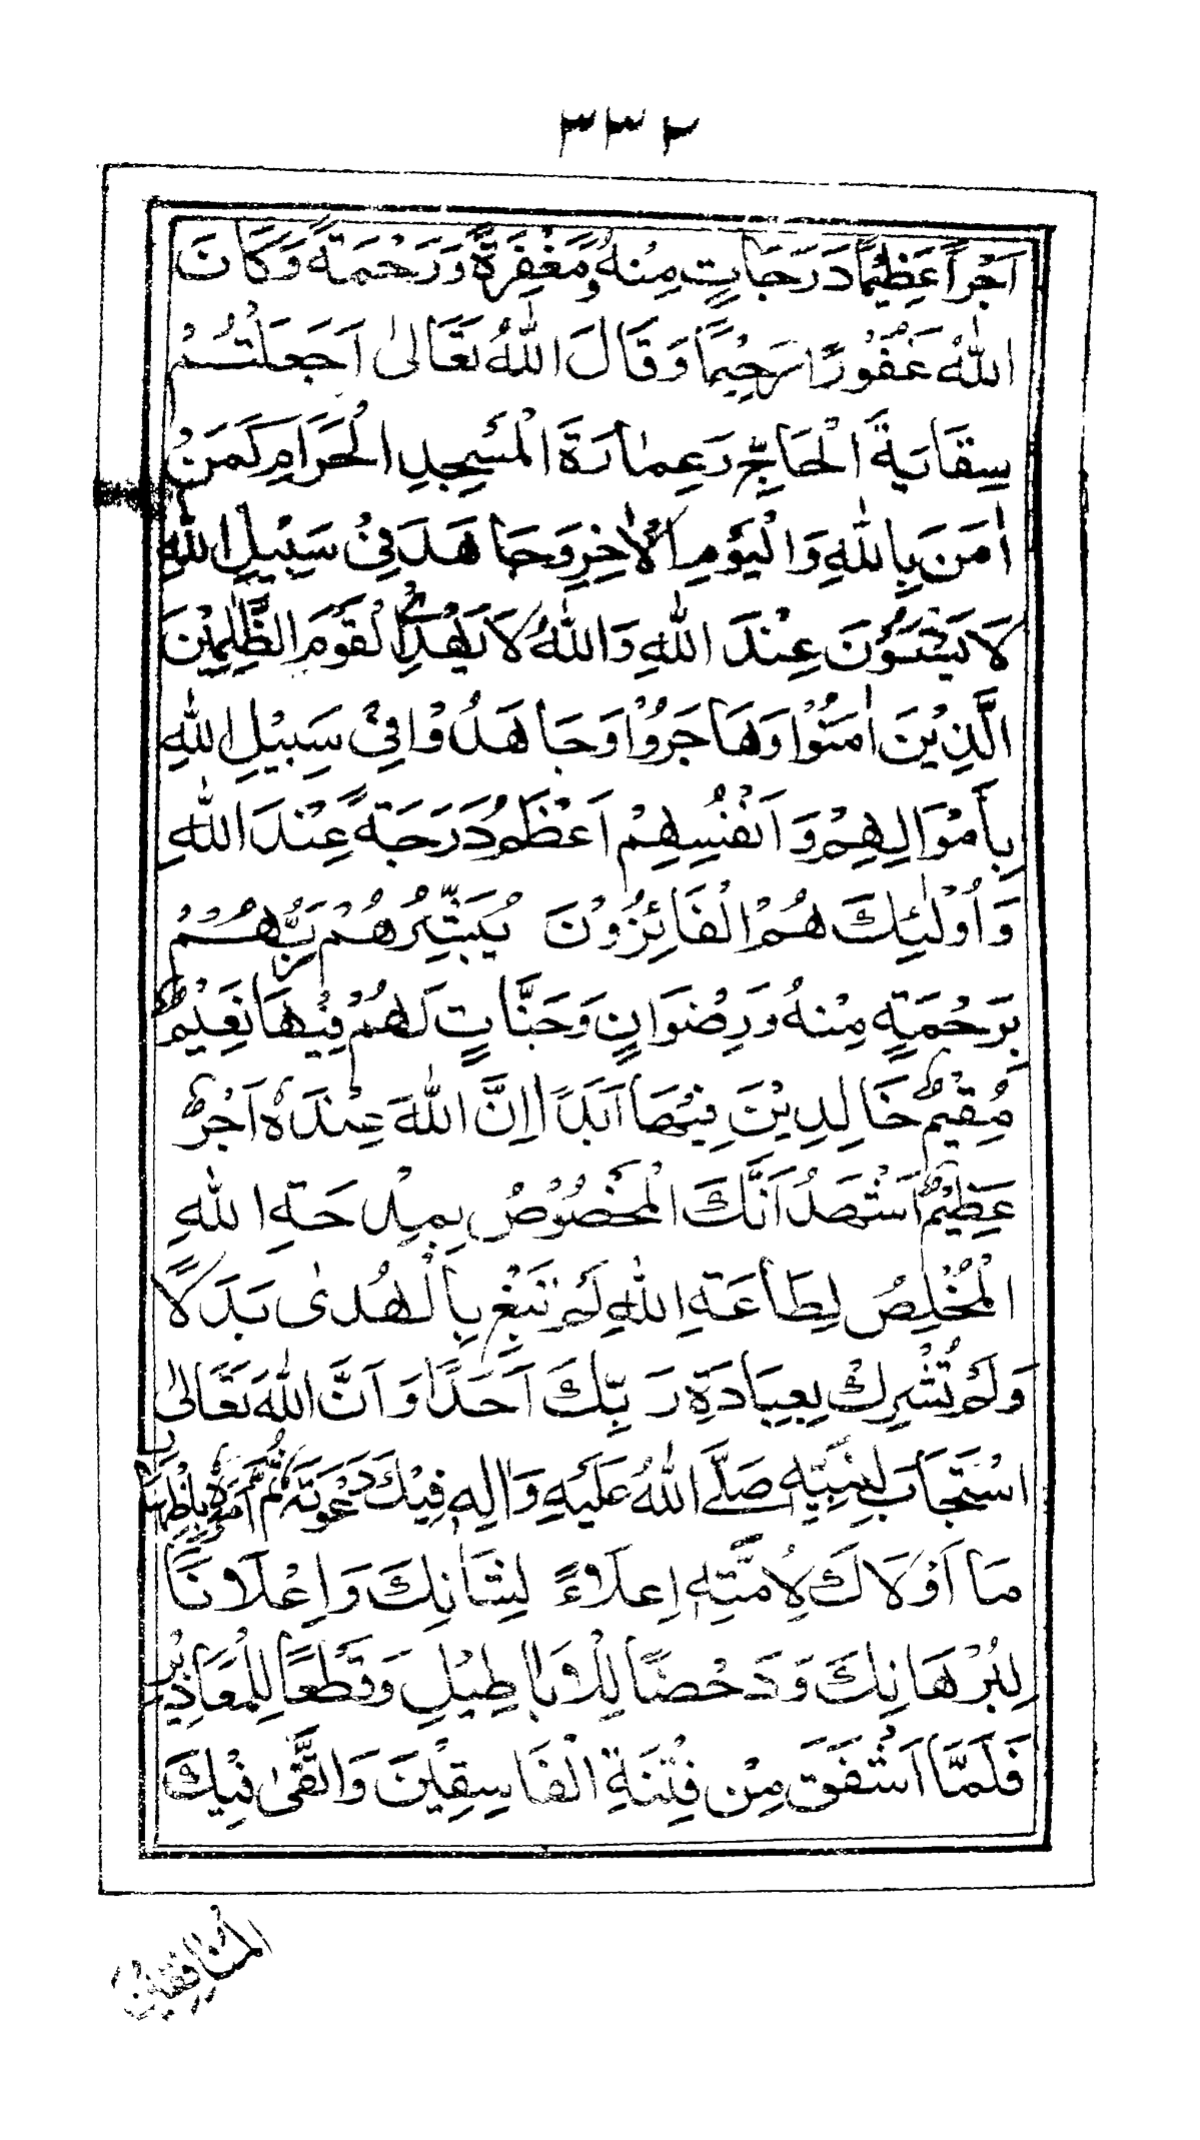 ٣٣٢
اَجْراً عَظِيْمًا دَرَجَاتٍ مِنْهُ وَمَغْفِرَةً وَرَحْمَةً وَكَانَ
اللّٰهُ غَفُوْرًا رَحِيْمًا وَقَالَ اللّٰهُ تَعَالىٰ اَجَعَلْتُمْ
سِقَايَةَ الْحَاجِّ وَعِمَارَةَ الْمَسْجِدِ الْحَرَامِ كَمَنْ
اٰمَنَ بِاللّٰهِ وَالْيَوْمِ الْاٰخِرِ وَجَاهَدَ فِىْ سَبِيْلِ اللّٰهِ
لَا يَسْتَوُوْنَ عِنْدَ اللّٰهِ وَاللّٰهُ لَا يَهْدِى الْقَوْمَ الظّٰلِمِيْنَ
الَّذِيْنَ اٰمَنُوْا وَهَاجَرُوْا وَجَاهَدُوْا فِىْ سَبِيْلِ اللّٰهِ
بِاَمْوَالِهِمْ وَاَنْفُسِهِمْ اَعْظَمُ دَرَجَةً عِنْدَ اللّٰهِ
وَاُوْلٰئِكَ هُمُ الْفَائِزُوْنَ يُبَشِّرُهُمْ رَبُّهُمْ
بِرَحْمَةٍ مِنْهُ وَرِضْوَانٍ وَجَنَّاتٍ لَهُمْ فِيْهَا نَعِيْمٌ
مُقِيْمٌ خَالِدِيْنَ فِيْهَا اَبَدًا اِنَّ اللّٰهَ عِنْدَهٗ اَجْرٌ
عَظِيْمٌ اَشْهَدُ اَنَّكَ الْمَخْصُوْصُ بِمِدْحَةِ اللّٰهِ
الْمُخْلِصُ لِطَاعَةِ اللّٰهِ لَمْ تَبْغِ بِالْهُدٰى بَدَلًا
وَلَمْ تُشْرِكْ بِعِبَادَةِ رَبِّكَ اَحَدًا وَاَنَّ اللّٰهَ تَعَالىٰ
اسْتَجَابَ لِنَبِيِّهٖ صَلَّى اللّٰهُ عَلَيْهِ وَاٰلِهٖ فِيْكَ دَعْوَتَهٗ ثُمَّ اَمَرَهٗ بِاِظْهَارِ
مَا اَوْلَاكَ لِاُمَّتِهٖ اِعْلَاءً لِشَانِكَ وَاِعْلَانًا
لِبُرْهَانِكَ وَدَحْضًا لِلْاَبَاطِيْلِ وَقَطْعًا لِلْمَعَاذِيْرِ
فَلَمَّا اَشْفَقَ مِنْ فِتْنَةِ الْفَاسِقِيْنَ وَاتَّقٰى فِيْكَ
الْمُنَافِقِيْنَ